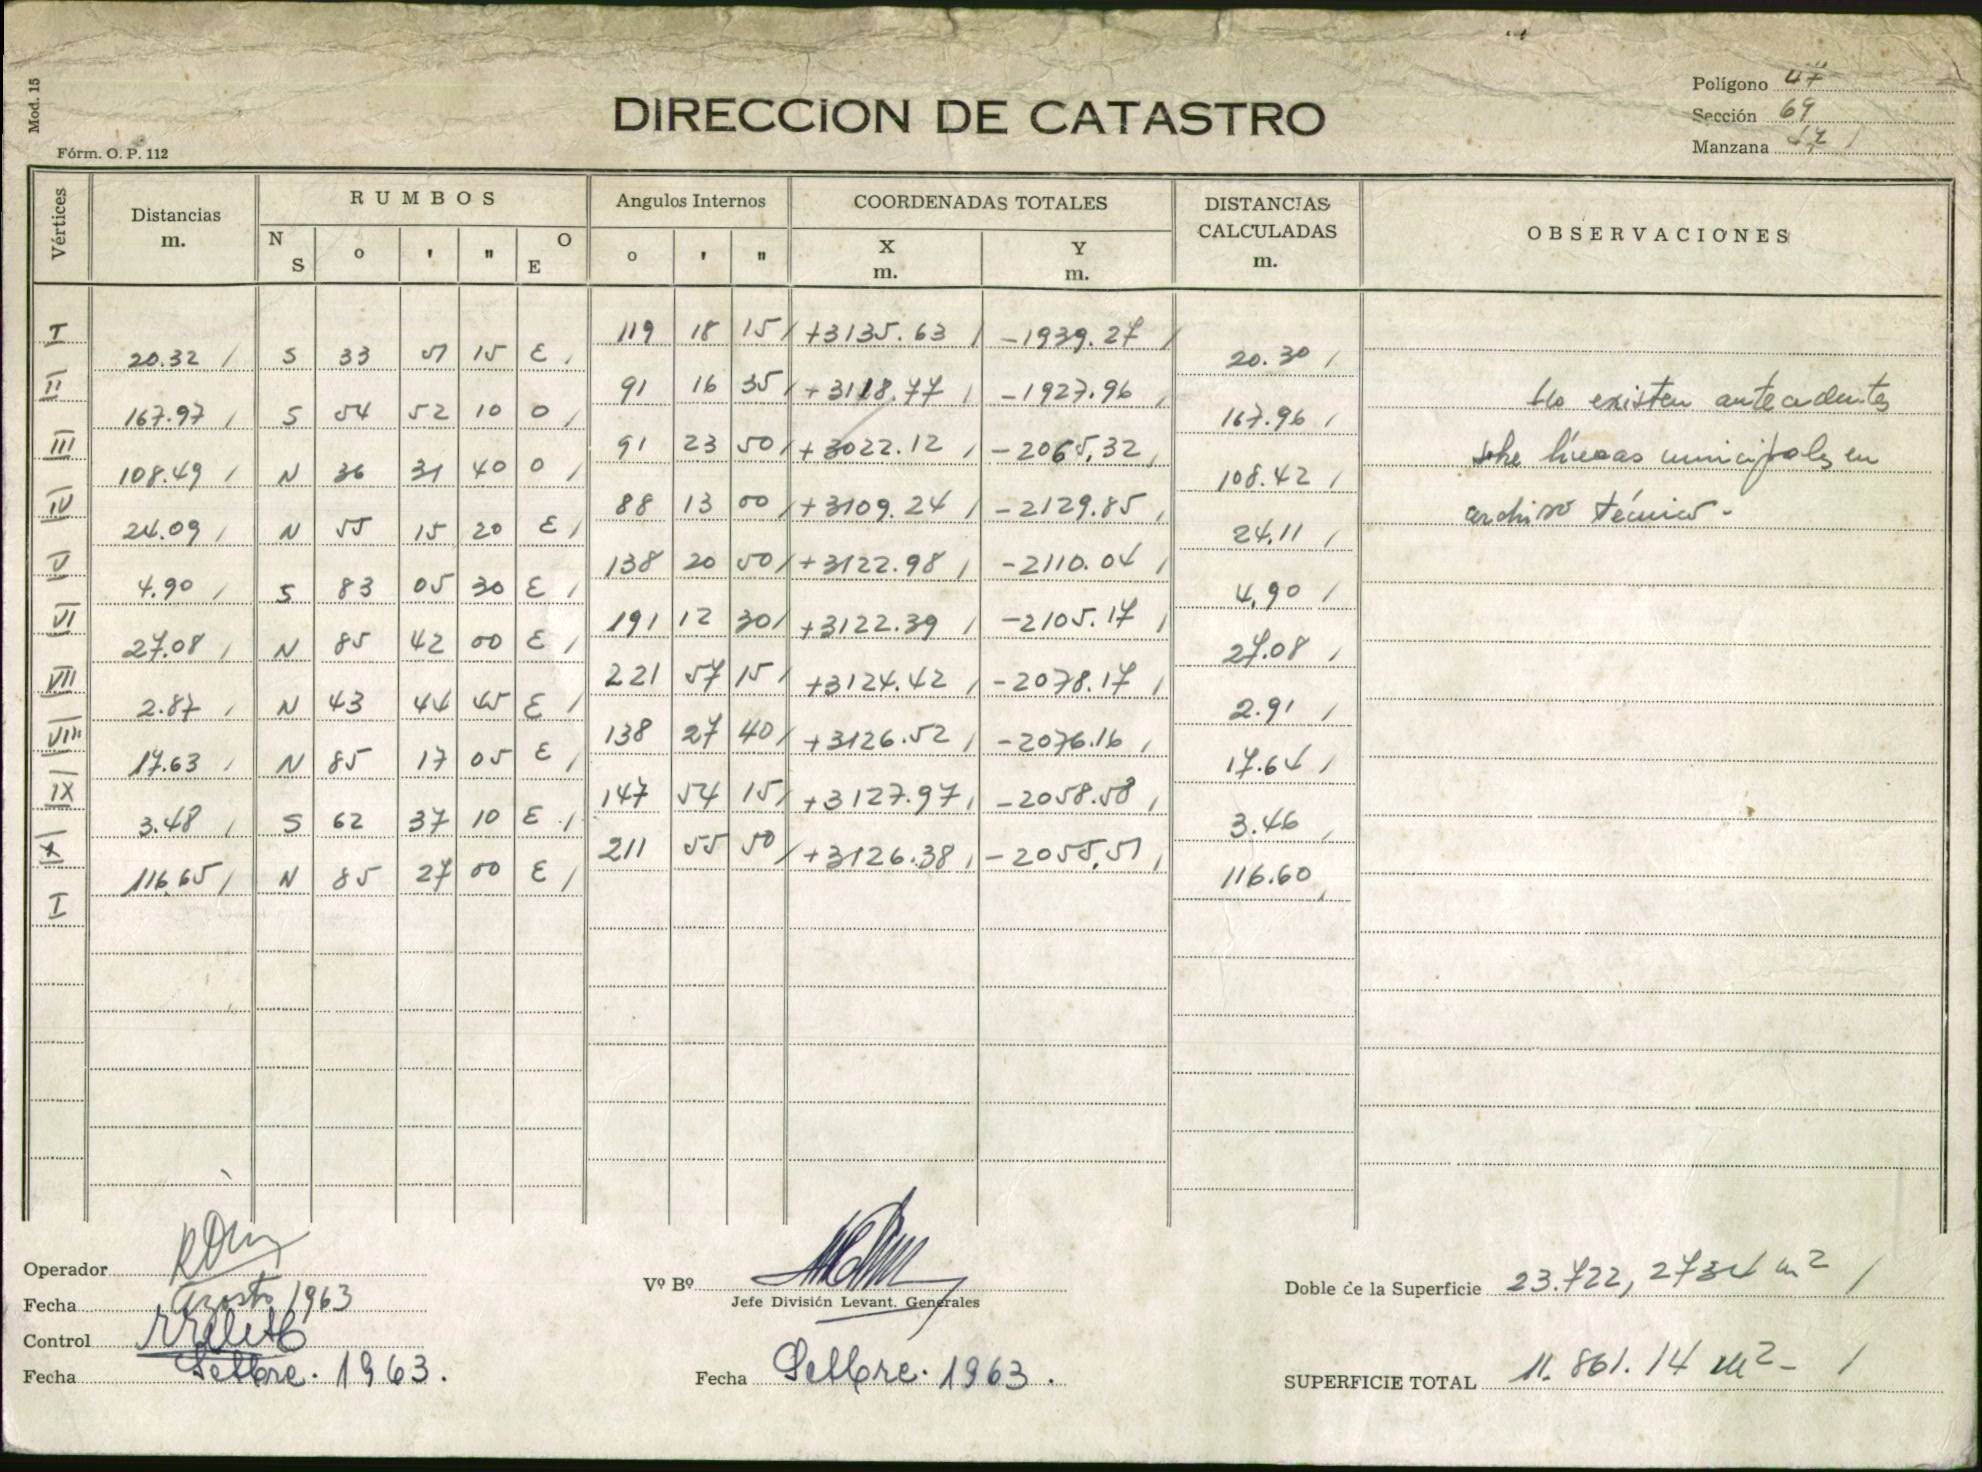 Mod. 15
Fórm. O. P. 112
DIRECCION DE CATASTRO
Polígono 47
Sección 69
Manzana
Vértices
Distancias m.
RUMBOS
N S ° ' " O E
Angulos Internos
° ' "
COORDENADAS TOTALES
X m. Y m.
DISTANCIAS CALCULADAS m.
OBSERVACIONES
I 119 18 15 +3135.63 -1939.27
20.32 S 33 51 15 E 20.30
II 91 16 35 +3118.77 -1927.96
167.97 S 54 52 10 O 167.96
III 91 23 50 +3022.12 -2065.32
108.49 N 36 31 40 O 108.42
IV 88 13 00 +3109.24 -2129.85
24.09 N 55 15 20 E 24.11
V 138 20 50 +3122.98 -2110.04
4.90 S 83 05 30 E 4.90
VI 191 12 30 +3122.39 -2105.17
27.08 N 85 42 00 E 27.08
VII 221 57 15 +3124.42 -2078.17
2.87 N 43 44 45 E 2.91
VIII 138 27 40 +3126.52 -2076.16
17.63 N 85 17 05 E 17.64
IX 147 54 15 +3127.97 -2058.58
3.48 S 62 37 10 E 3.46
X 211 55 50 +3126.38 -2055.51
116.65 N 85 27 00 E 116.60
I
No existen antecedentes
sobre líneas municipales en
archivo técnico.
Operador
Fecha Agosto 1963
Control
Fecha Setbre. 1963.
Vº Bº
Jefe División Levant. Generales
Fecha Setbre. 1963.
Doble de la Superficie 23.722,2734 m2
SUPERFICIE TOTAL 11.861.14 m2-